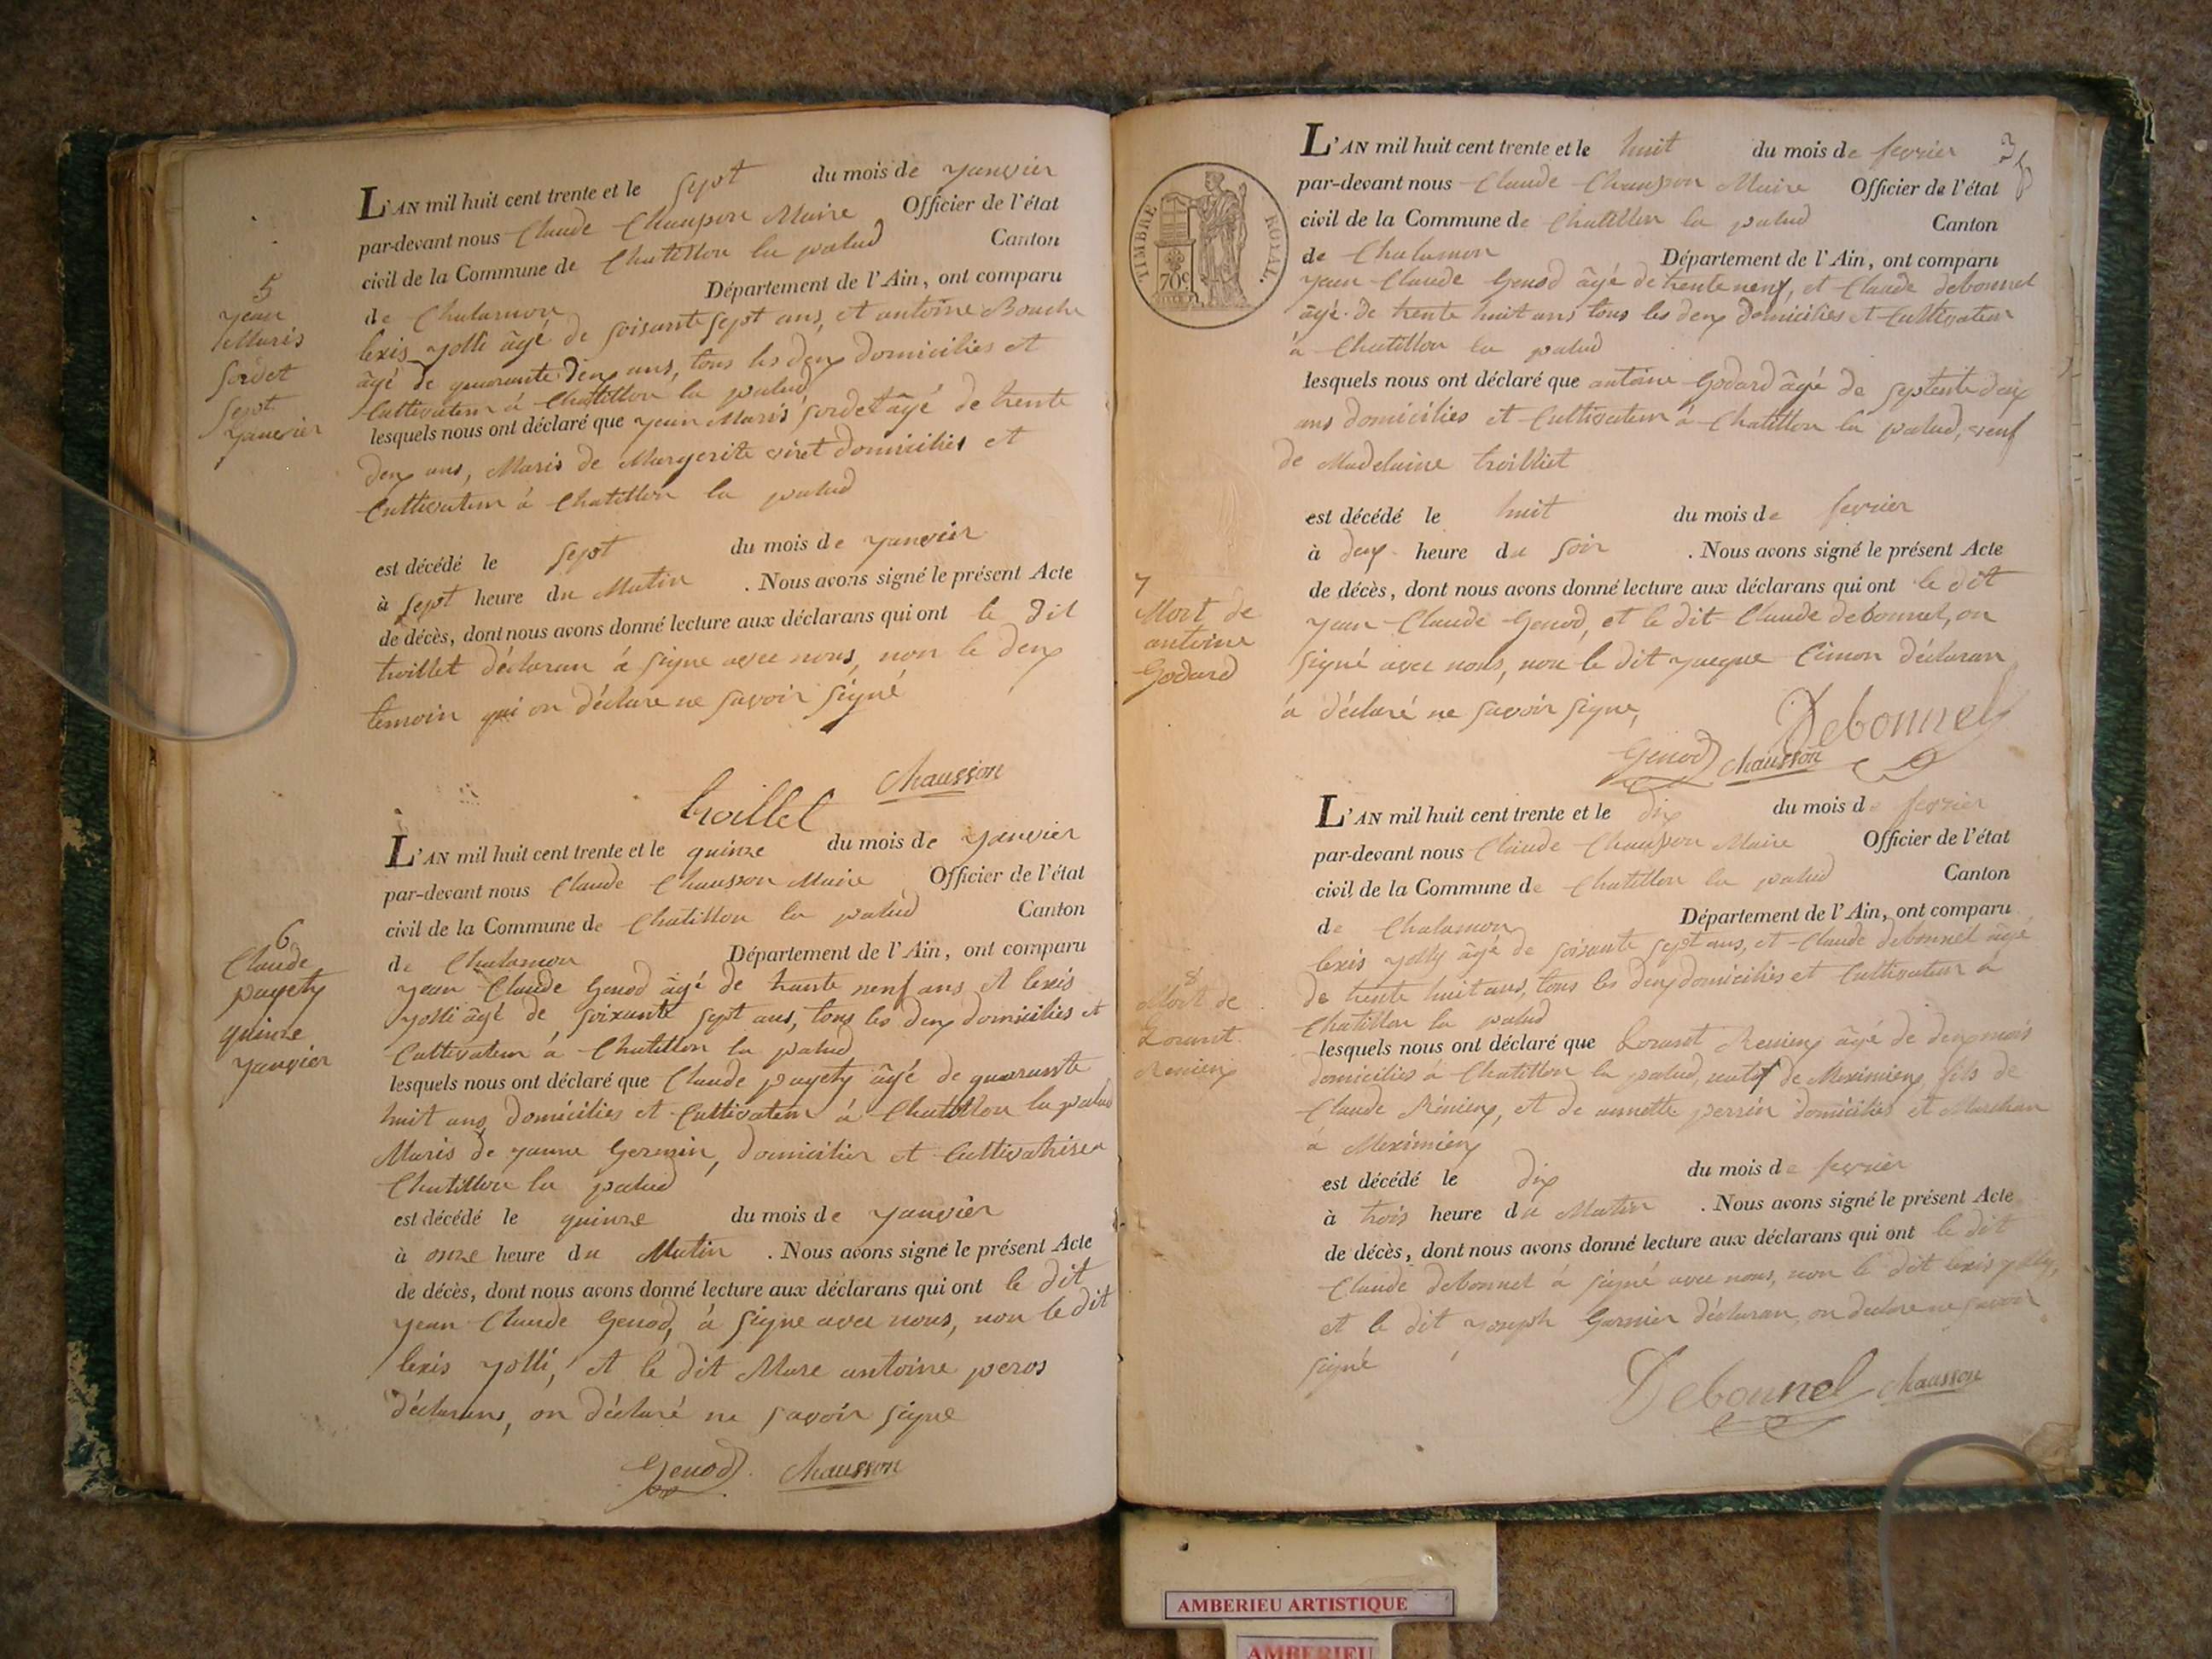 L'AN mil huit cent trente et le sept du mois de janvier
par-devant nous Claude Chausson Maire Officier de l'état
civil de la Commune de Chatillon la palud Canton
de Chalamon Département de l'Ain, ont comparu
lexis yolli âgé de soisante sept ans, et antoine Bouche
âgé de quarante deux ans, tous les deux domiciliés et
Cultivateur à Chatillon la palud
lesquels nous ont déclaré que jean Maris sordet âgé de trente
deux ans, Maris de Margerite viret domiciliés et
Cultivateur à Chatillon la palud
est décédé le sept du mois de janvier
à sept heure du Matin . Nous avons signé le présent Acte
de décès, dont nous avons donné lecture aux déclarans qui ont le dit
troillet déclaran à signe avec nous, non le deux
temoin qui on déclare ne savoir signé
troillet Chausson
5
jean
Maris
sordet
sept
janvier
L'AN mil huit cent trente et le quinze du mois de janvier
par-devant nous Claude Chausson Maire Officier de l'état
civil de la Commune de Chatillon la palud Canton
de Chalamon Département de l'Ain, ont comparu
jean Claude Genod âgé de trante neuf ans et lexis
yolli âgé de soixante sept ans, tous les deux domiciliés et
Cultivateur à Chatillon la palud
lesquels nous ont déclaré que Claude payety âgé de quarante
huit ans, domiciliés et Cultivateur à Chatillon la palud
Maris de janne Germin, domicilier et Cultivatrise a
Chatillon la palud
est décédé le quinze du mois de janvier
à onze heure du Matin . Nous avons signé le présent Acte
de décès, dont nous avons donné lecture aux déclarans qui ont le dit
jean Claude Genod, à signe avec nous, non le dit
lexis yolli, et le dit Marc antoine peros
déclarans, on déclaré ne savoir signe
Genod Chausson
6
Claude
payety
quinze
janvier
TIMBRE ROYAL.
70c
L'AN mil huit cent trente et le huit du mois de fevrier
par-devant nous Claude Chausson Maire Officier de l'état
civil de la Commune de Chatillon la palud Canton
de Chalamon Département de l'Ain, ont comparu
jean Claude Genod âgé de trente neuf, et Claude debonnel
âgé de trente huit ans tous les deux domiciliés et Cultivateur
à Chatillon la palud
lesquels nous ont déclaré que antoine Godard âgé de septente deux
ans domiciliés et Cultivateur à Chatillon la palud, veuf
de Madelaine troilliet
est décédé le huit du mois de fevrier
à deux heure du soir . Nous avons signé le présent Acte
de décès, dont nous avons donné lecture aux déclarans qui ont le dit
jean Claude Genod, et le dit Claude debonnel, on
signé avec nous, non le dit jacque Cimon déclaran
à déclaré ne savoir signe,
Debonnel
Genod Chausson
7
Mort de
antoine
Godard
L'AN mil huit cent trente et le dix du mois de fevrier
par-devant nous Claude Chausson Maire Officier de l'état
civil de la Commune de Chatillon la palud Canton
de Chalamon Département de l'Ain, ont comparu
lexis yolly âgé de soisante sept ans, et Claude debonnel âgé
de trente huit ans, tous les deux domiciliés et Cultivateur à
Chatillon la palud
lesquels nous ont déclaré que Lorant Remieux âgé de deux mois
domiciliés à Chatillon la palud, natif de Meximieux fils de
Claude Rémieux, et de annette perrin domiciliés et Marchan
à Meximieux
est décédé le dix du mois de fevrier
à trois heure du Matin . Nous avons signé le présent Acte
de décès, dont nous avons donné lecture aux déclarans qui ont le dit
Claude debonnel à signé avec nous, non le dit lexis yolly,
et le dit joseph Garnier déclaran, on declare ne savoir
signé
Debonnel Chausson
8
Mort de
Lorant
Remieux
AMBERIEU ARTISTIQUE
AMBERIEU